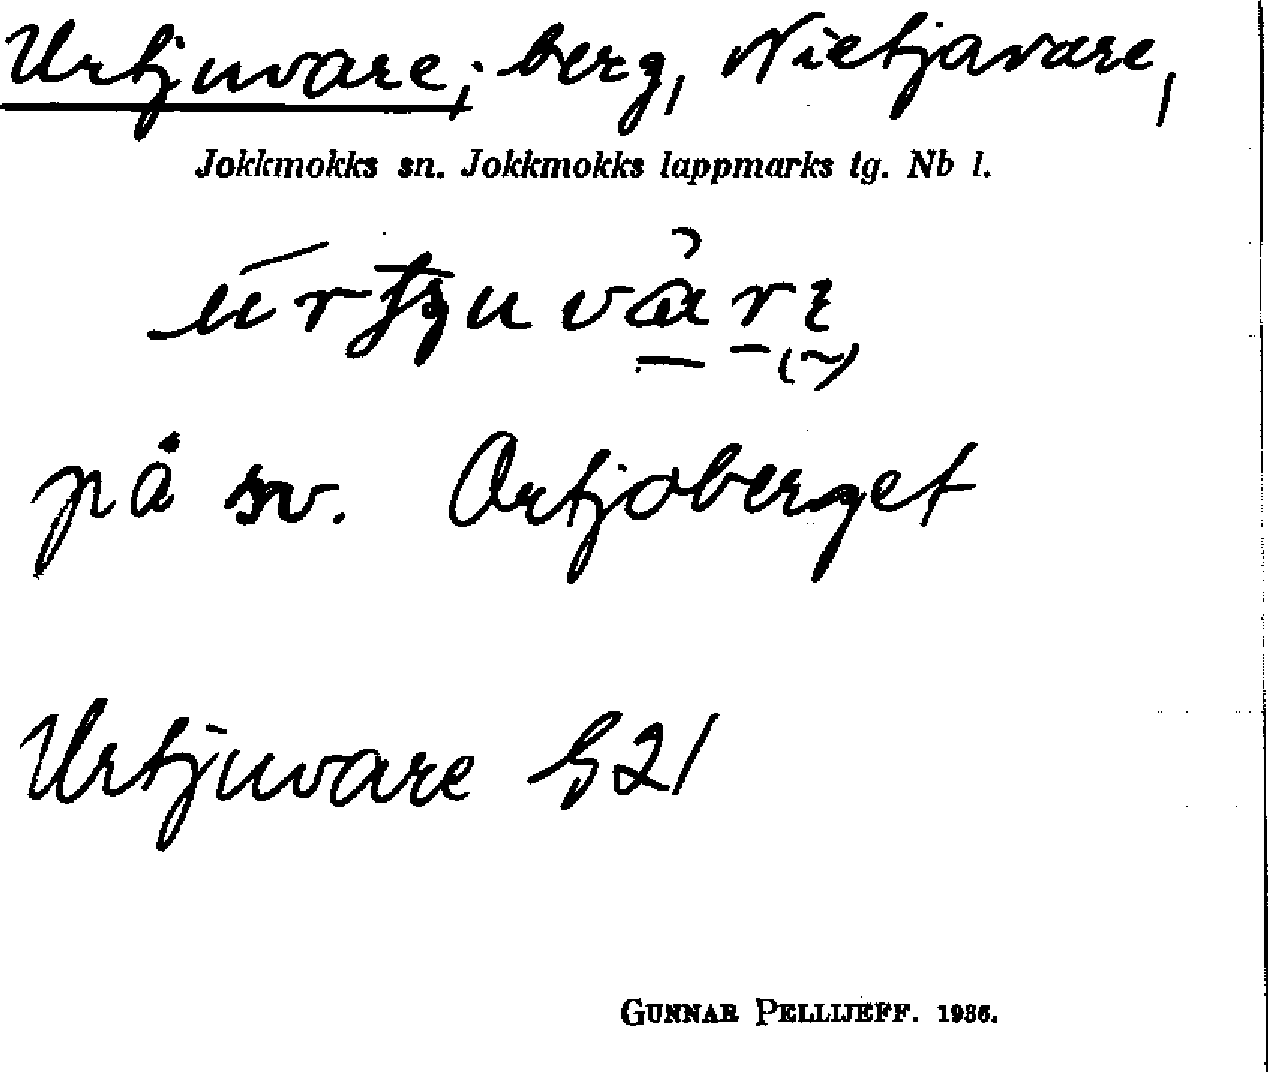 Urtjuvare, berg, Nietjavare,
Jokkmokks sn. Jokkmokks lappmarks tg. Nb l.
på sv. Ortjoberget
Urtjuvare G21
GUNNAR PELLIJEFF. 1986.